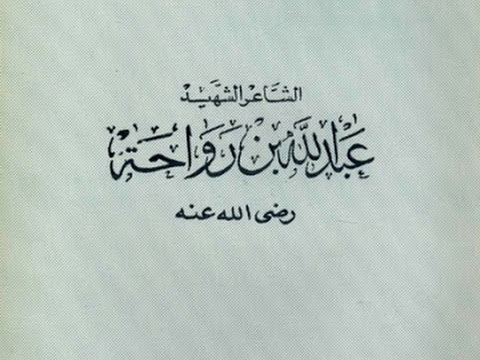 الشاعر الشهيد
عبد الله بن رواحة
رضى الله عنه